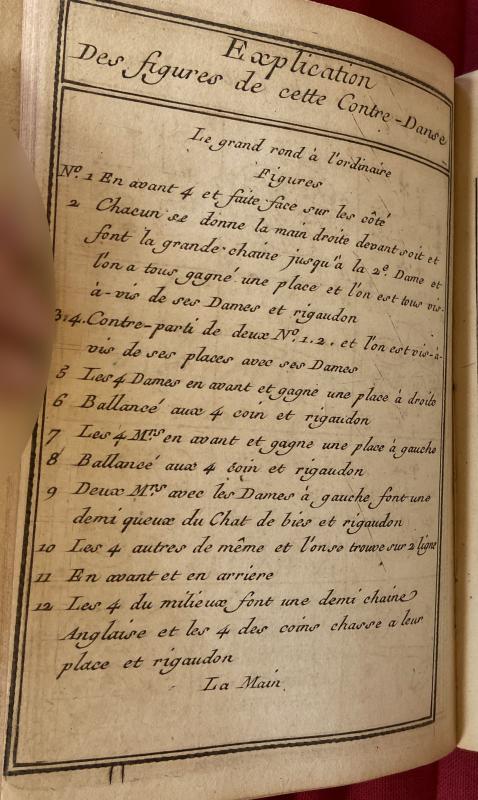 Explication
Des figures de cette Contre-Danse
Le grand rond à l'ordinaire
Figures
No. 1 En avant 4 et faite face sur les côté
2 Chacun se donne la main droite devant soit et
font la grande chaine jusqu'à la 2e. Dame et
l'on a tous gagné une place et l'on est tous vis-
à-vis de ses Dames et rigaudon
3.4. Contre-parti de deux No. 1.2. et l'on est vis-à-
vis de ses places avec ses Dames
5 Les 4 Dames en avant et gagne une place à droite
6 Ballancé aux 4 coin et rigaudon
7 Les 4 Mrs en avant et gagne une place à gauche
8 Ballancé aux 4 coin et rigaudon
9 Deux Mrs avec les Dames à gauche font une
demi queux du Chat de bies et rigaudon
10 Les 4 autres de même et l'on se trouve sur 2 ligne
11 En avant et en arriere
12 Les 4 du milieux font une demi chaine
Anglaise et les 4 des coins chasse a leur
place et rigaudon
La Main